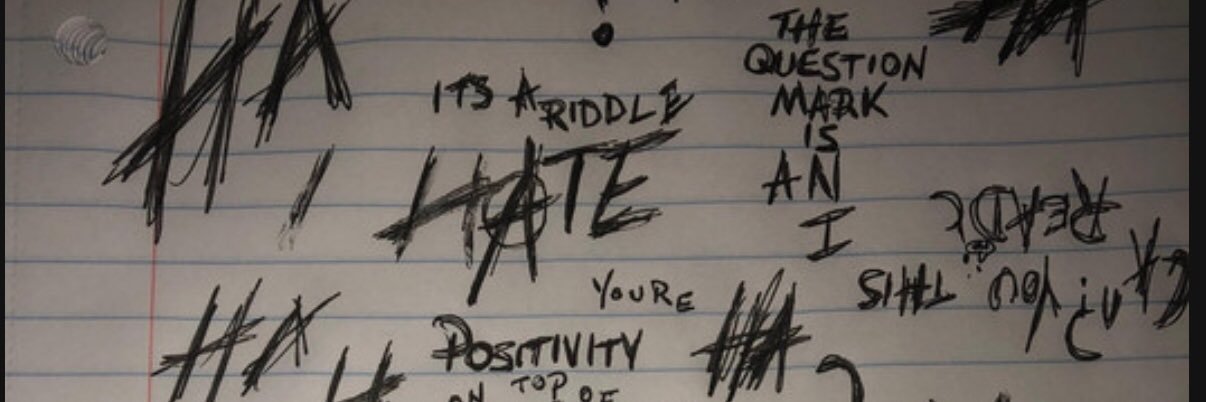 HA
HA
?
ITS A RIDDLE
HATE
THE
QUESTION
MARK
IS
AN
I
CAn i You THIS
READ?
YOURE
POSITIVITY
ON TOP OF
HA
HA
?